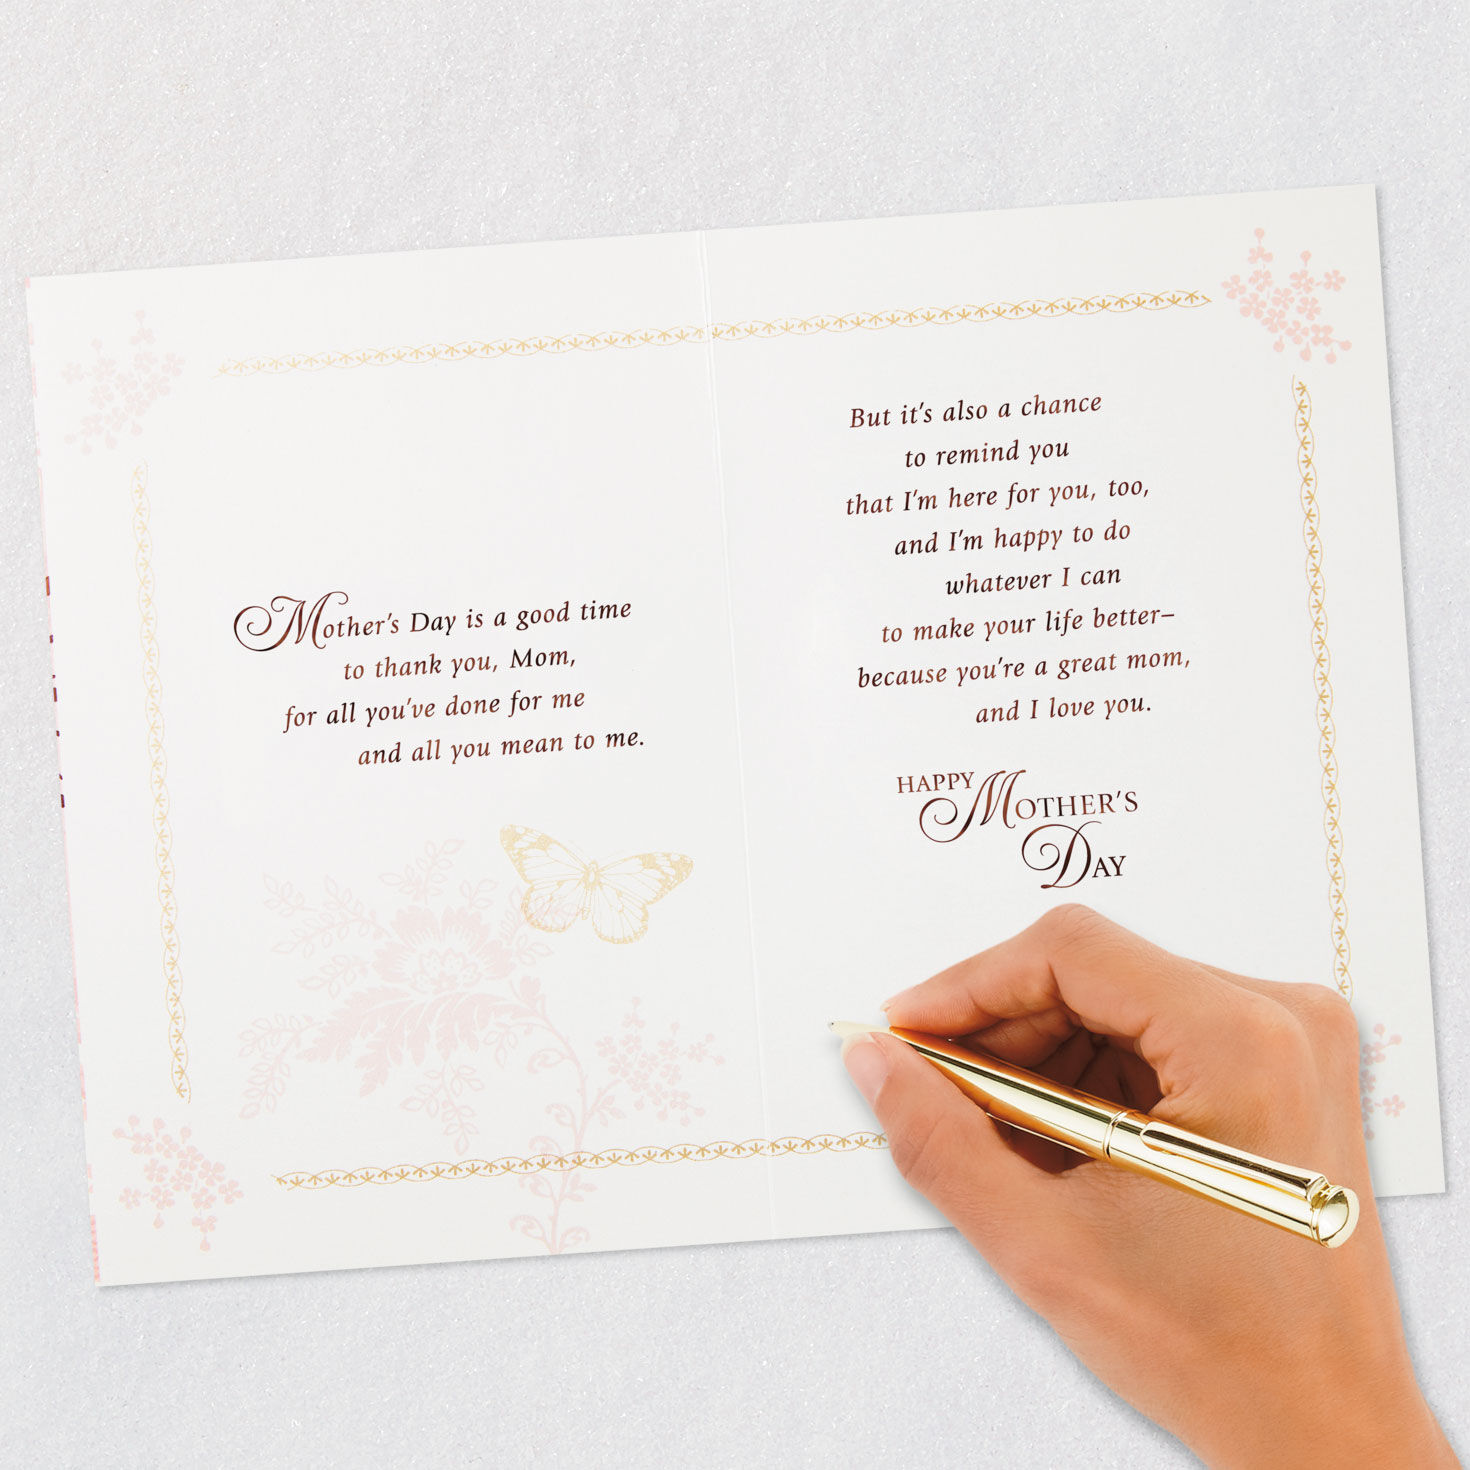 Mother's Day is a good time
to thank you, Mom,
for all you've done for me
and all you mean to me.
But it's also a chance
to remind you
that I'm here for you, too,
and I'm happy to do
whatever I can
to make your life better–
because you're a great mom,
and I love you.
HAPPY
MOTHER'S
DAY